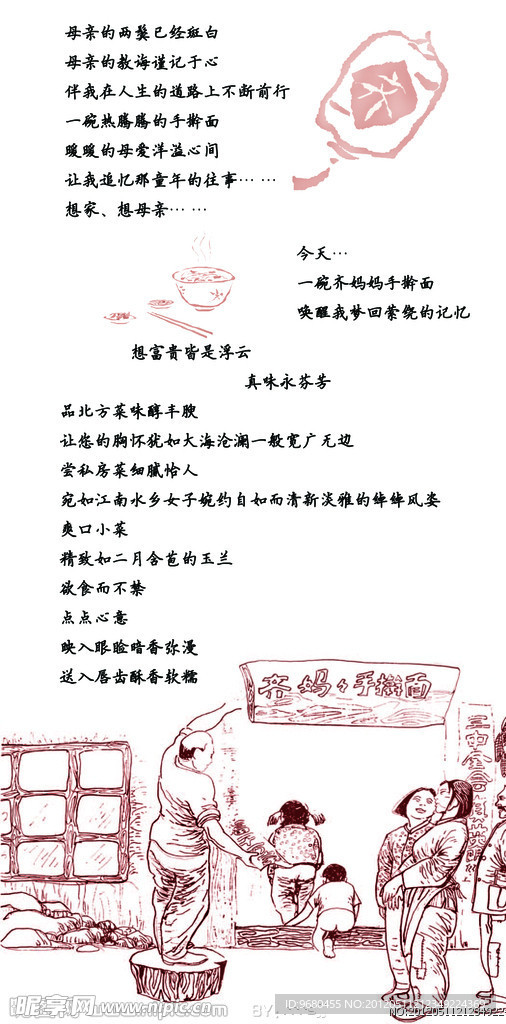 母亲的两鬓已经斑白
母亲的教诲谨记于心
伴我在人生的道路上不断前行
一碗热腾腾的手擀面
暖暖的母爱洋溢心间
让我追忆那童年的往事… …
想家、想母亲… …
今天…
一碗齐妈妈手擀面
唤醒我梦回萦绕的记忆
想富贵皆是浮云
真味永芬芳
品北方菜味醇丰腴
让您的胸怀犹如大海沧澜一般宽广无边
尝私房菜细腻怡人
宛如江南水乡女子婉约自如而清新淡雅的绰绰风姿
爽口小菜
精致如二月含苞的玉兰
欲食而不禁
点点心意
映入眼脸暗香弥漫
送入唇齿酥香软糯
齐妈々手擀面
昵享网 www.nipic.com
BY:
ID:9680455 NO:20120511512349224369
NO:2012051121234922